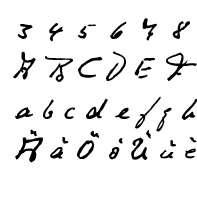 3 4 5 6 7 8
A B C D E F
a b c d e f g h
Ä à Ö ò Ü ù è